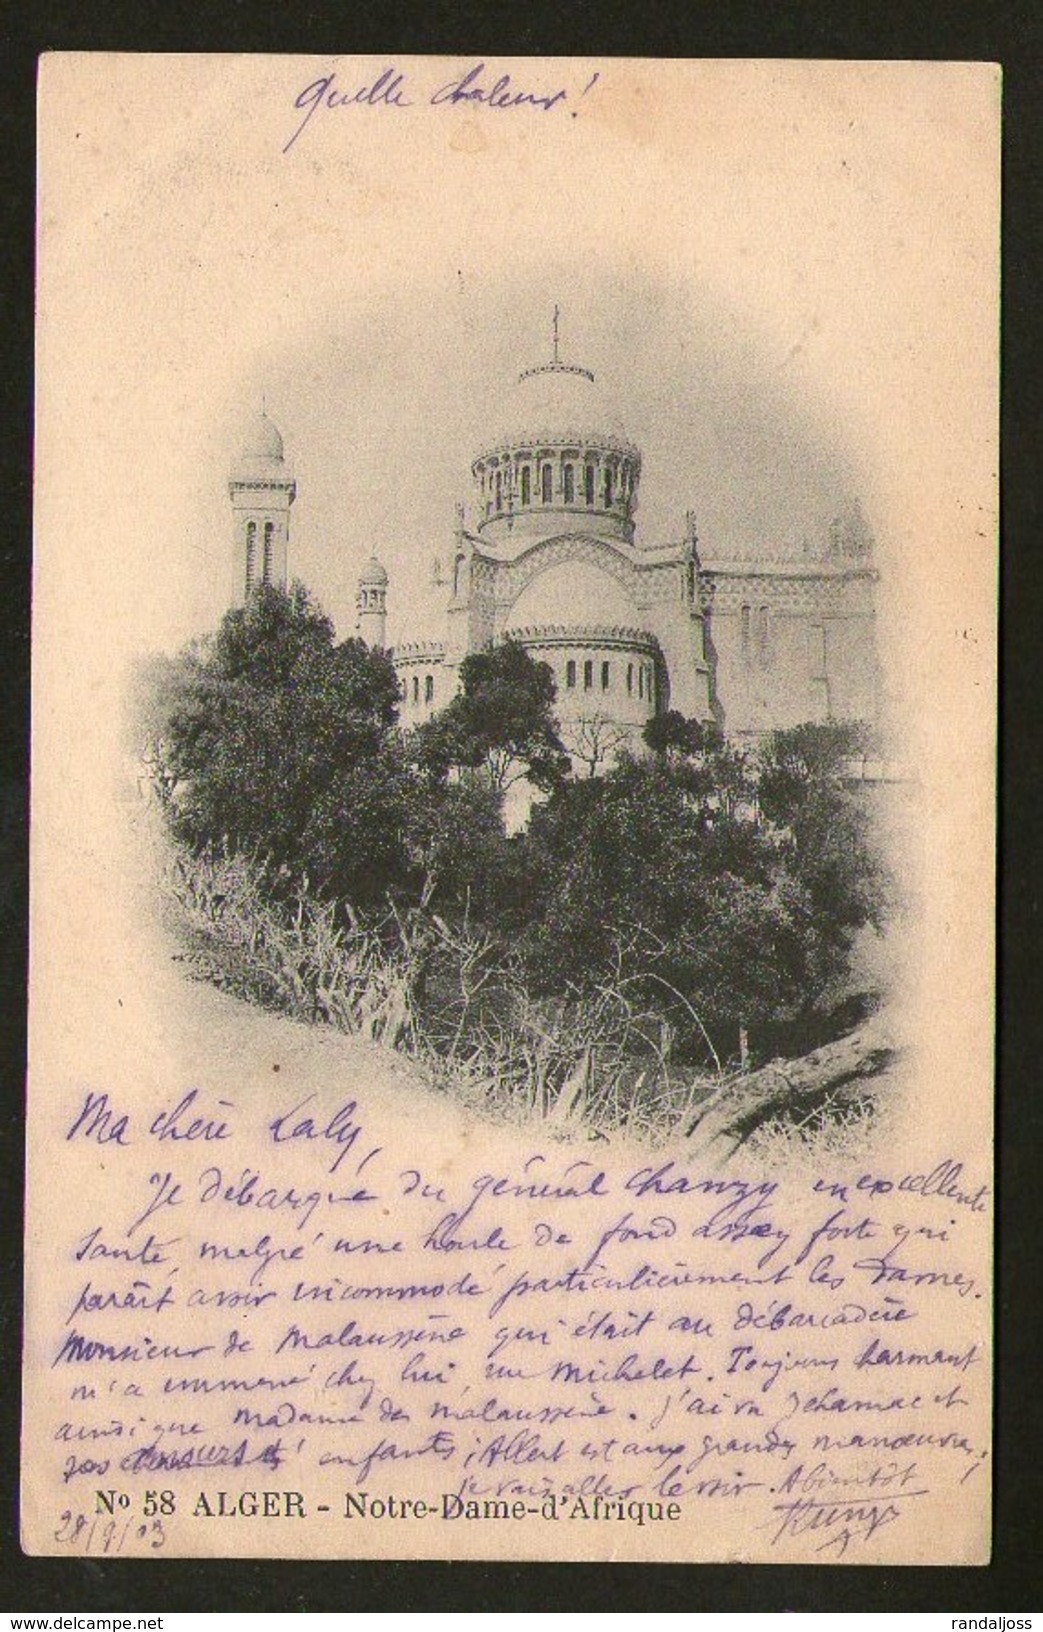 Quelle chaleur!
Ma chère Laly,
Je débarque du général Chanzy en excellente
santé, malgré une houle de fond assez forte qui
paraît avoir incommodé particulièrement les Dames.
Monsieur de Malaussène qui était au débarcadère
m'a emmené chez lui, rue Michelet. Toujours charmant
ainsi que Madame de Malaussène. J'ai vu et
ses enfants; Albert est aux grandes manœuvres!
je vais aller le voir. A bientôt
No 58 ALGER - Notre-Dame-d'Afrique
28/9/03
http://www.delcampe.net
randaljoss